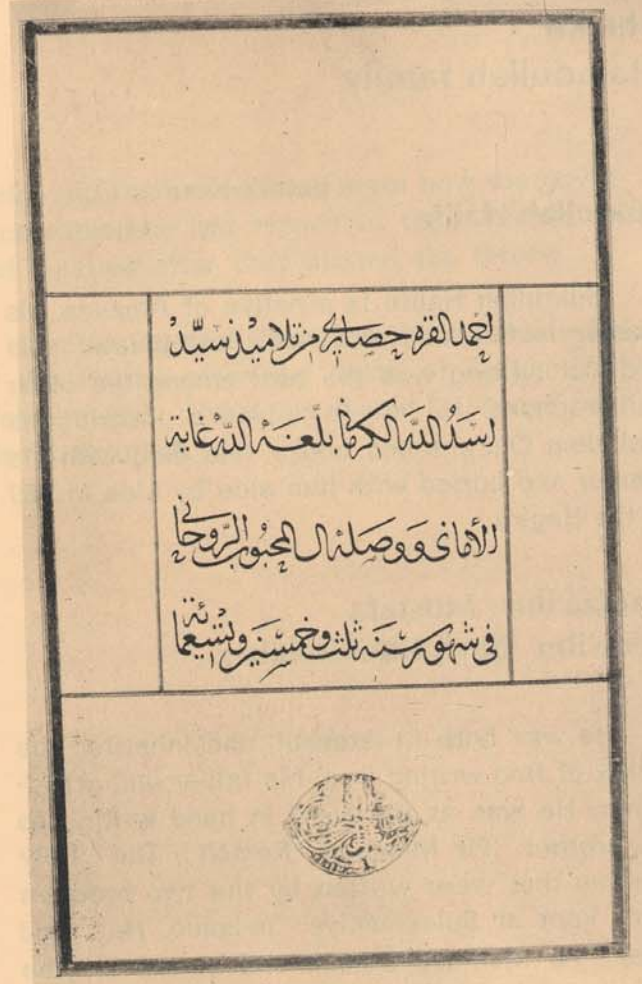 احمد القره حصارى من تلاميذ سيد
اسد الله الكرمانى بلغه الله غاية
الأمانى ووصله الى المحبوب الروحانى
فى شهور سنه ثلث وخمسين وتسعمائة